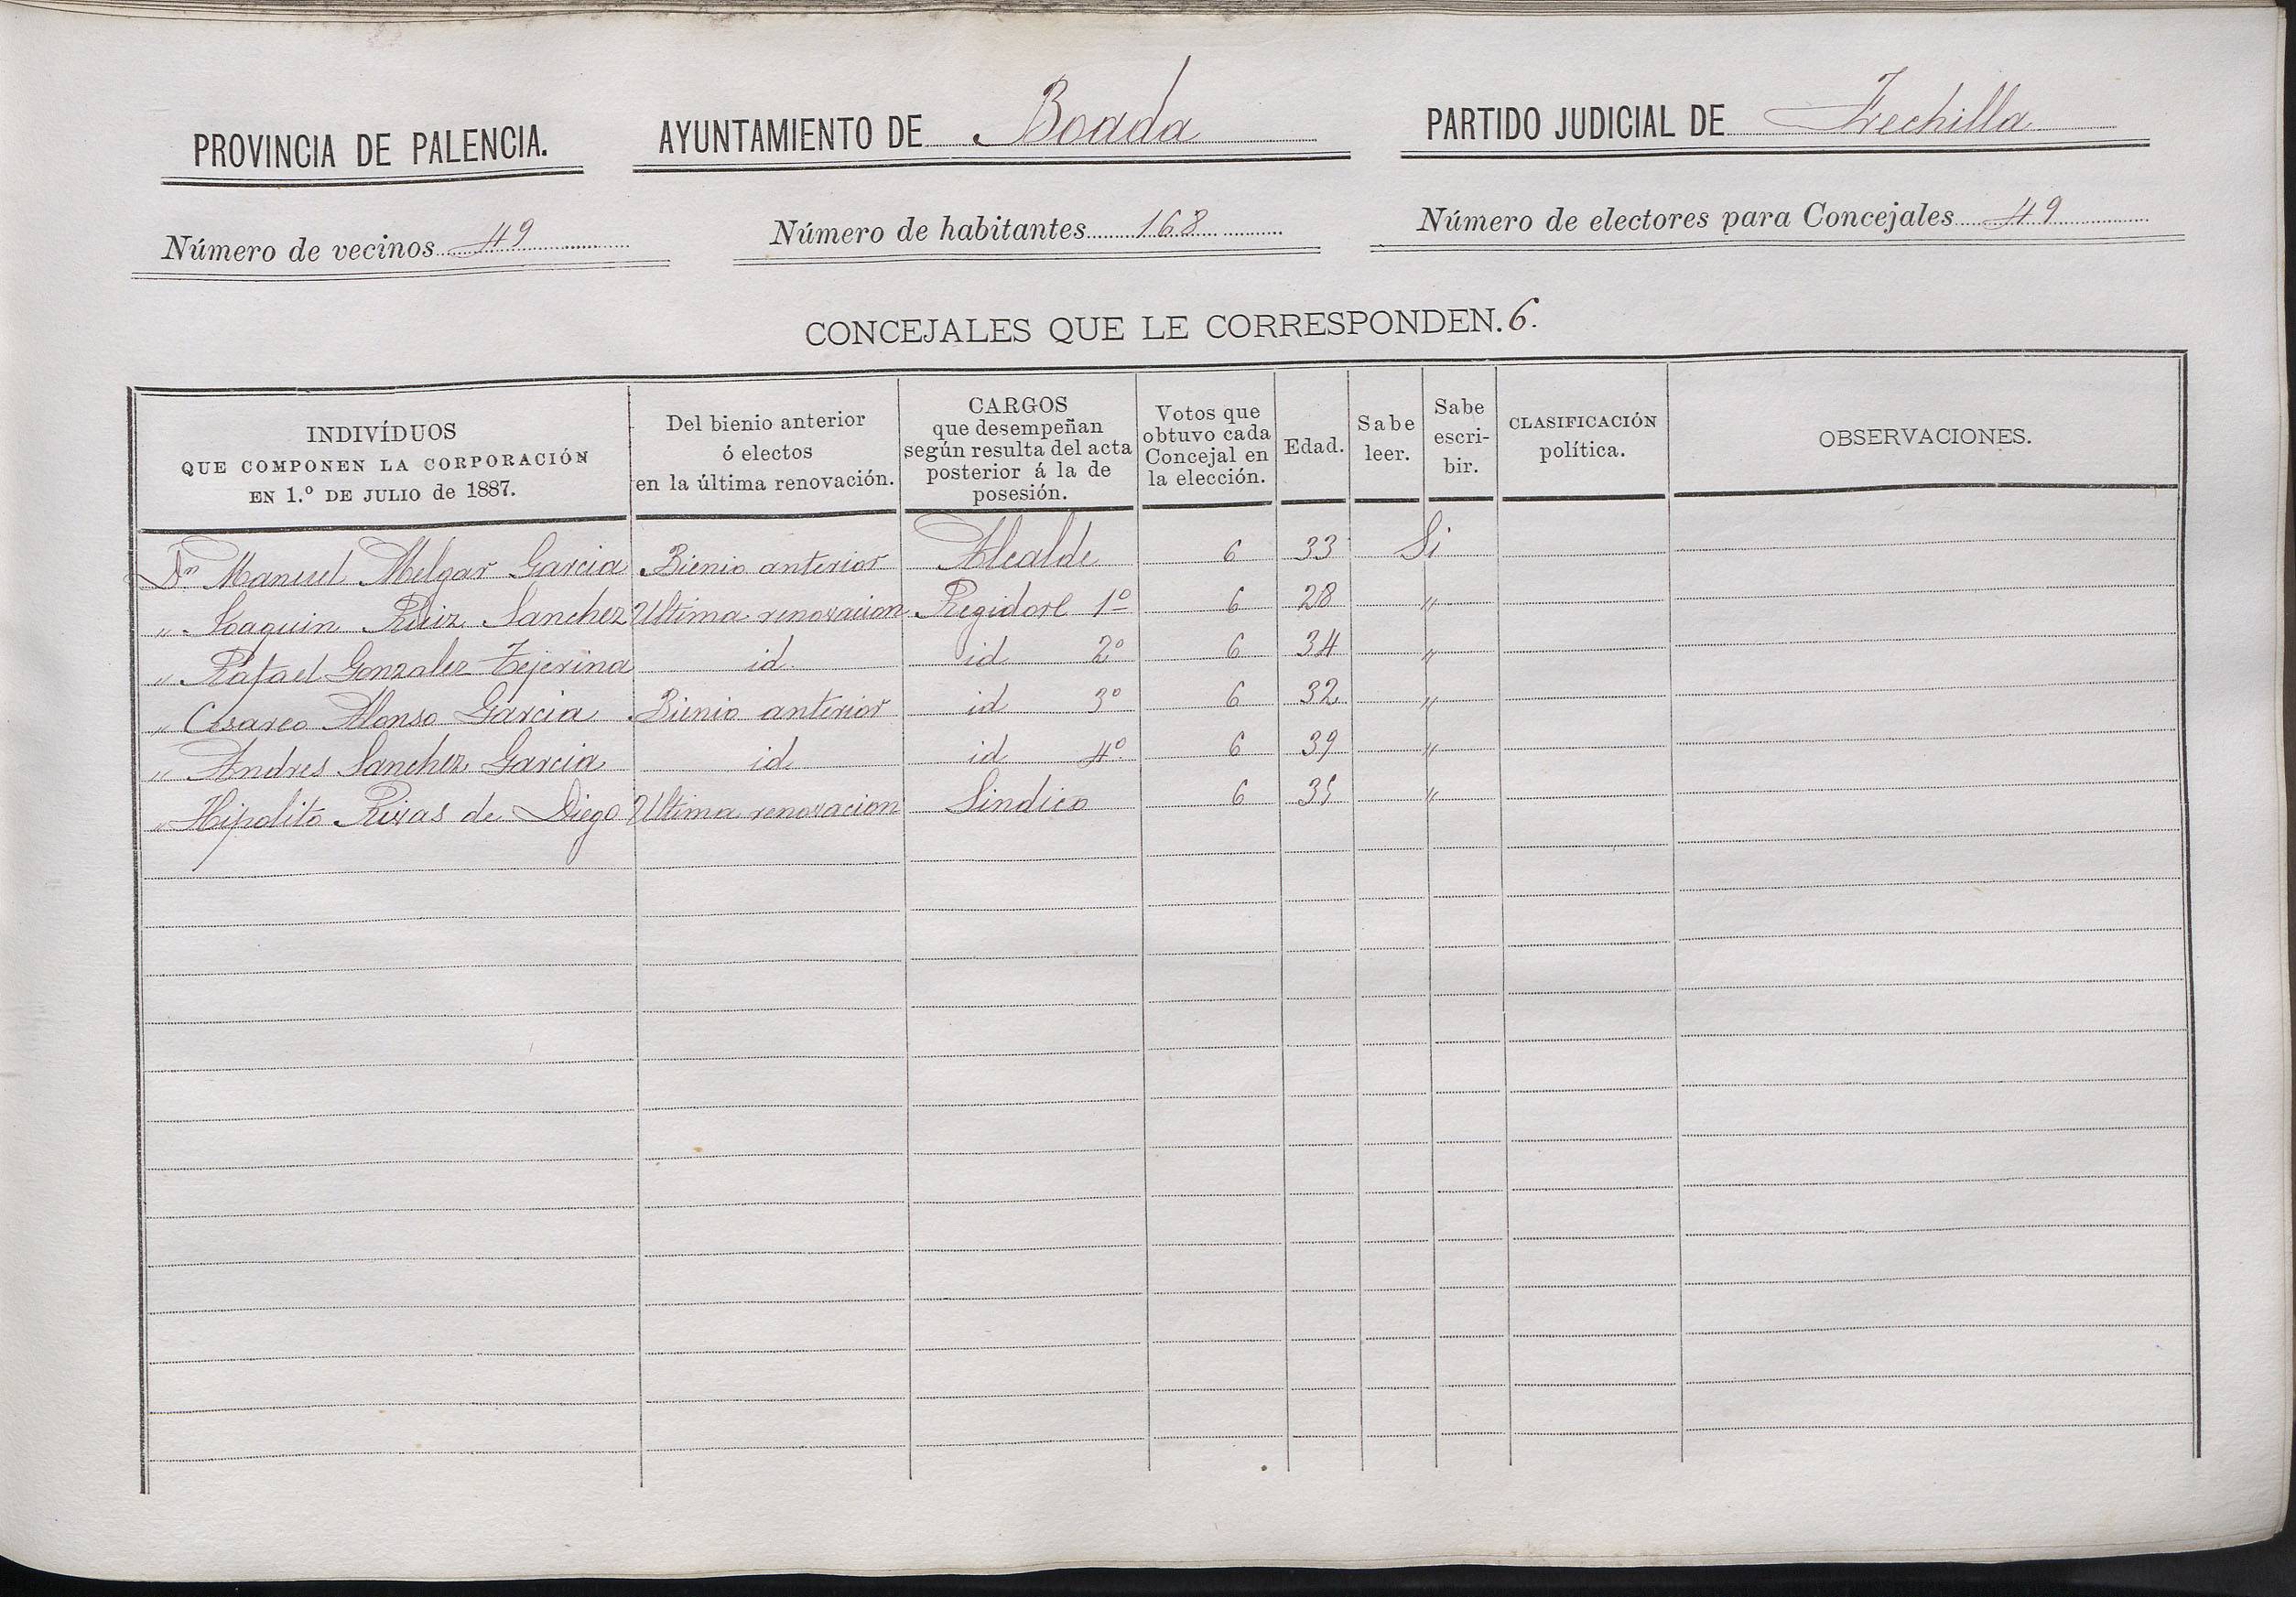 PROVINCIA DE PALENCIA. AYUNTAMIENTO DE Boada PARTIDO JUDICIAL DE Frechilla
Número de vecinos 49 Número de habitantes 168 Número de electores para Concejales 49
CONCEJALES QUE LE CORRESPONDEN. 6.
INDIVÍDUOS QUE COMPONEN LA CORPORACIÓN EN 1.º DE JULIO de 1887. Del bienio anterior ó electos en la última renovación. CARGOS que desempeñan según resulta del acta posterior á la de posesión. Votos que obtuvo cada Concejal en la elección. Edad. Sabe leer. Sabe escribir. CLASIFICACIÓN política. OBSERVACIONES.
Dn Manuel Melgar Garcia Bienio anterior Alcalde 6 33 Si
" Joaquin Ruiz Sanchez Ultima renovacion Regidor 1º 6 28 "
" Rafael Gonzalez Tejerina id id 2º 6 34 "
" Cesareo Alonso Garcia Bienio anterior id 3º 6 32 "
" Andres Sanchez Garcia id id 4º 6 39 "
" Hipolito Rivas de Diego Ultima renovacion Sindico 6 35 "